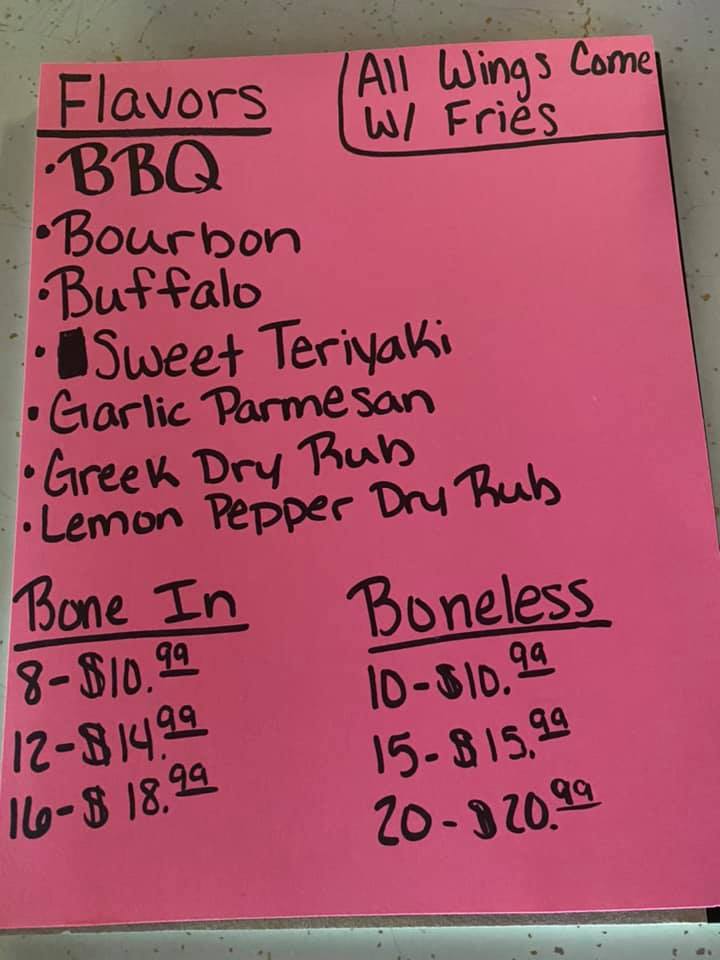 Flavors
All Wings Come
W/ Fries
•BBQ
•Bourbon
•Buffalo
• Sweet Teriyaki
• Garlic Parmesan
•Greek Dry Rub
•Lemon Pepper Dry Rub
Bone In
8-$10.99
12-$14.99
16-$18.99
Boneless
10-$10.99
15-$15.99
20-$20.99